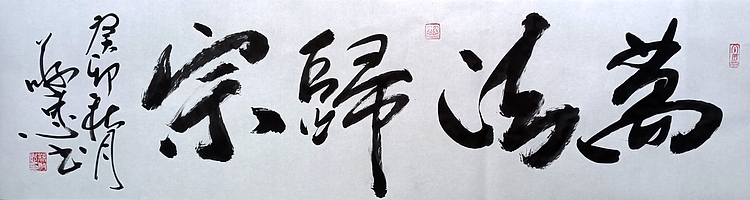 萬法歸宗
癸卯秋月
書